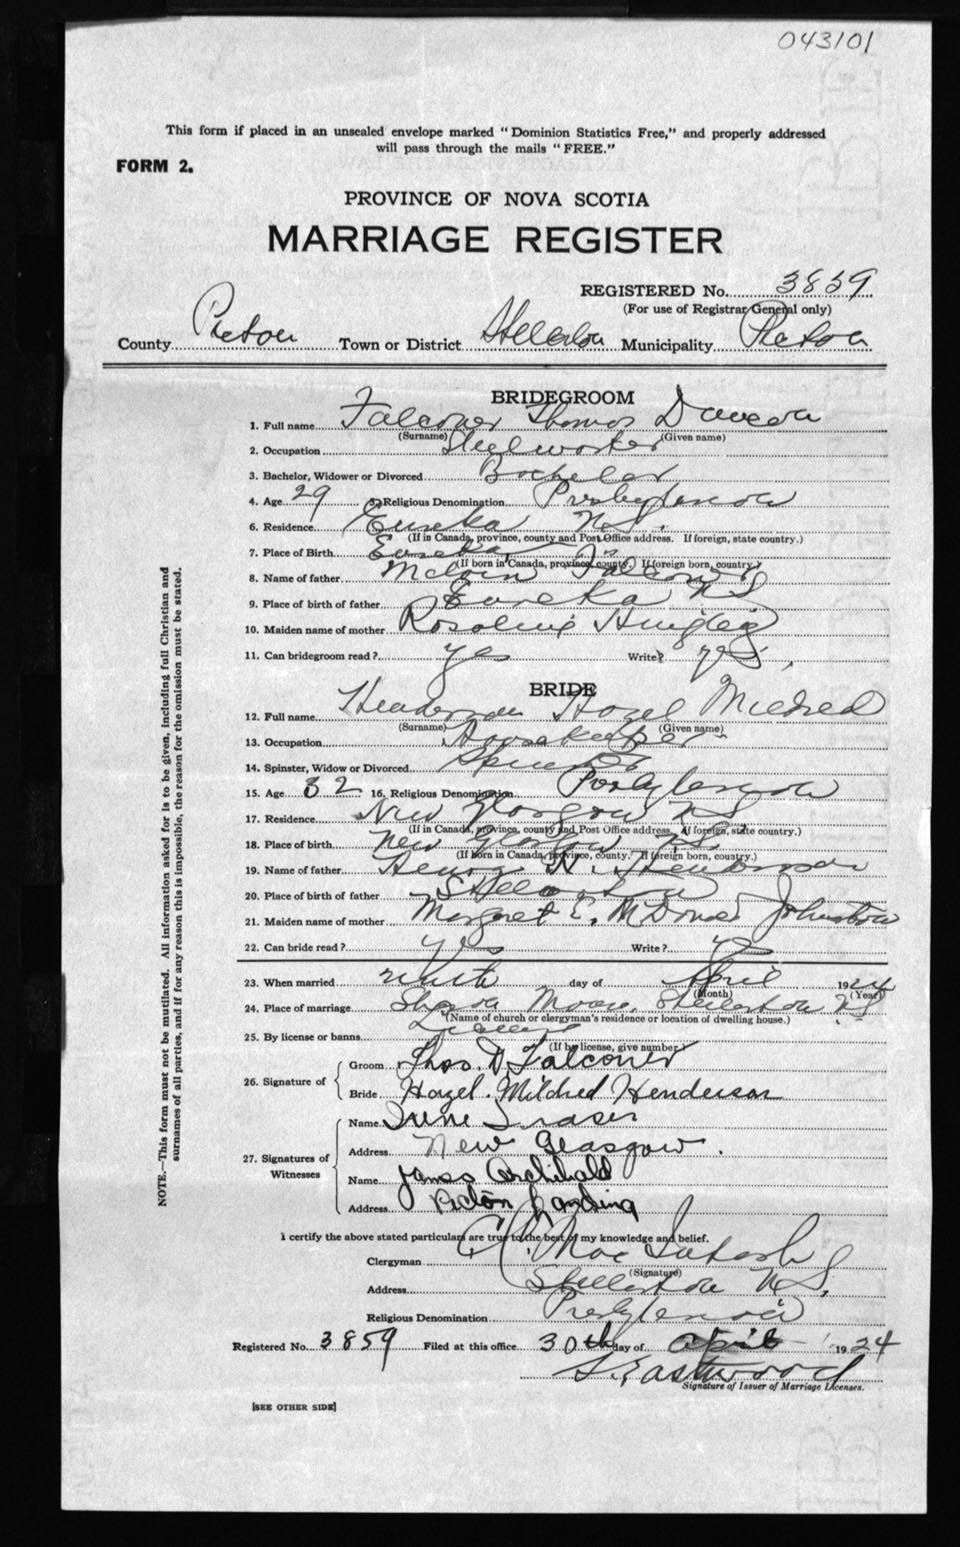 043101
This form if placed in an unsealed envelope marked "Dominion Statistics Free," and properly addressed
will pass through the mails "FREE."
FORM 2.
PROVINCE OF NOVA SCOTIA
MARRIAGE REGISTER
REGISTERED No. 3859
(For use of Registrar General only)
County Pictou Town or District Stellarton Municipality Pictou
BRIDEGROOM
1. Full name Falconer Thomas Dawson
(Surname) (Given name)
2. Occupation Steelworker
3. Bachelor, Widower or Divorced Bachelor
4. Age 29 5. Religious Denomination Presbyterian
6. Residence Eureka N.S.
(If in Canada, province, county and Post Office address. If foreign, state country.)
7. Place of Birth Eureka
(If born in Canada, province, county.) If foreign born, country.)
8. Name of father Falconer
9. Place of birth of father Eureka N S
10. Maiden name of mother
11. Can bridegroom read? yes Write? yes
BRIDE
12. Full name Henderson Hazel Mildred
(Surname) (Given name)
13. Occupation Housekeeper
14. Spinster, Widow or Divorced Spinster
15. Age 32 16. Religious Denomination Presbyterian
17. Residence New Glasgow N S
(If in Canada, province, county and Post Office address. If foreign, state country.)
18. Place of birth New Glasgow N.S.
(If born in Canada, province, county. If foreign born, country.)
19. Name of father Henry H. Henderson
20. Place of birth of father Stellarton
21. Maiden name of mother Margaret E. McDonald Johnston
22. Can bride read? yes Write? yes
23. When married ninth day of April 1924
(Month) (Year)
24. Place of marriage Manse, Stellarton N S
(Name of church or clergyman's residence or location of dwelling house.)
25. By license or banns License
(If by license, give number)
26. Signature of Groom Thos. D. Falconer
Bride Hazel. Mildred Henderson
27. Signatures of Witnesses Name June Fraser
Address New Glasgow.
Name James Archibald
Address Pictou Landing
I certify the above stated particulars are true to the best of my knowledge and belief.
Clergyman C. C. MacIntosh
(Signature)
Address Stellarton N.S.
Religious Denomination Presbyterian
Registered No. 3859 Filed at this office 30th day of April 1924
S. Eastwood
Signature of Issuer of Marriage Licenses.
[SEE OTHER SIDE]
NOTE.—This form must not be mutilated. All information asked for is to be given, including full Christian and
surnames of all parties, and if for any reason this is impossible, the reason for the omission must be stated.